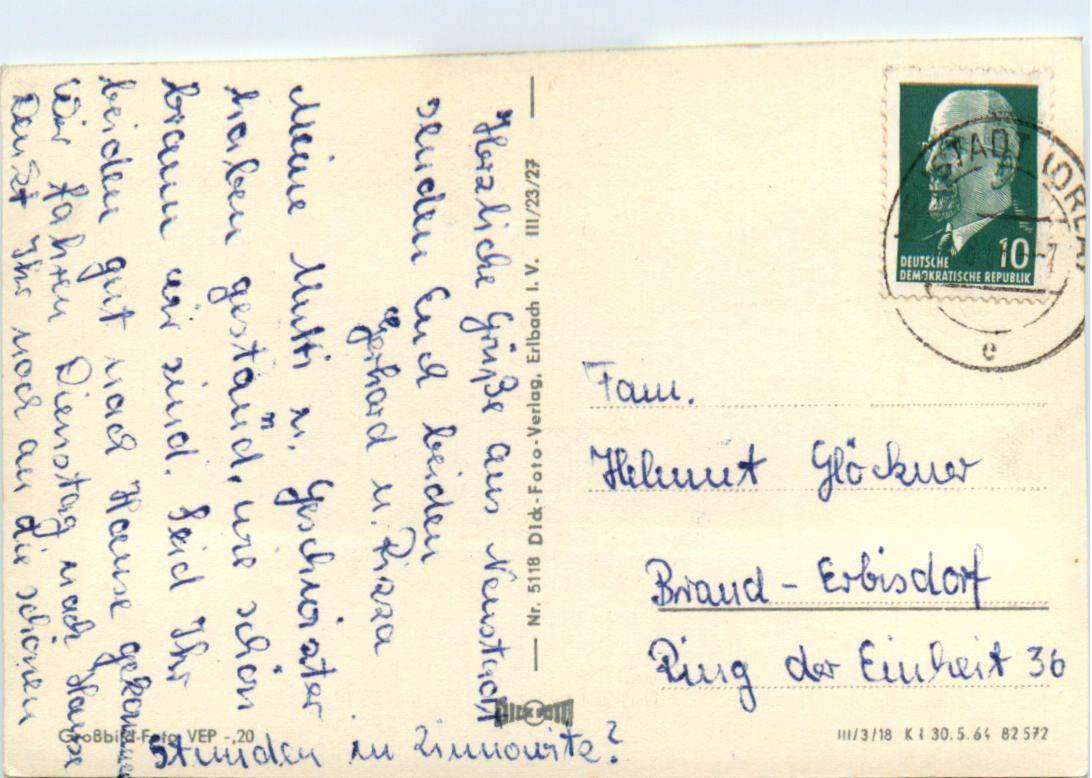 Herzliche Grüße aus Neustadt
senden Euch beiden
Gerhard u. Rizza
Meine Mutti u. Geschwister
haben gestaunt, wie schön
braun wir sind. Seid Ihr
beiden gut nach Hause gekommen
Wir fahren Dienstag nach Hause
Denkt Ihr noch an die schönen
Stunden in Zinnowitz?
Nr. 5118 Dick-Foto-Verlag, Erlbach i. V. III/23/27
DICK FOTO
Großbild-Foto VEP -,20
DEUTSCHE
DEMOKRATISCHE REPUBLIK
10
NEUSTADT (ORLA)
e
Fam.
Helmut Glöckner
Brand-Erbisdorf
Ring der Einheit 36
III/3/18 K I 30.5.64 82572